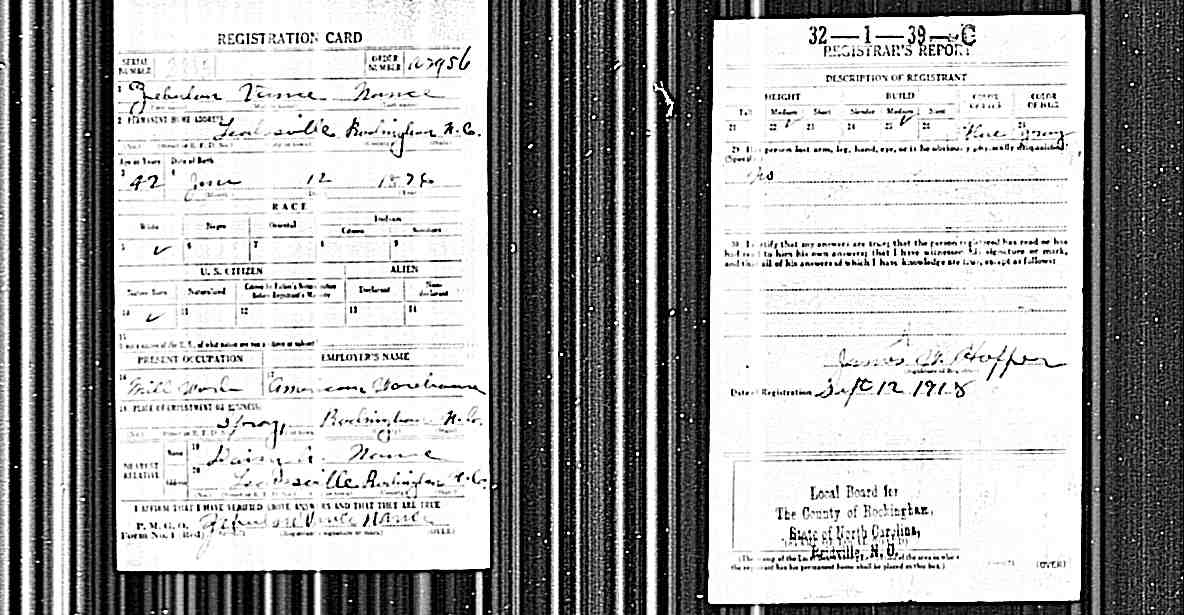 REGISTRATION CARD
SERIAL NUMBER
ORDER NUMBER
1 Zebulon Vance Nance
2 PERMANENT HOME ADDRESS
Leaksville Rockingham N.C.
Age in Years Date of Birth
3 42 4 June 12 1876
RACE
White Negro Oriental Indian
Citizen Noncitizen
5 ✓ 6 7 8 9
U. S. CITIZEN ALIEN
Native Born Naturalized Citizen by Father's Naturalization Before Registrant's Majority Declarant Non-declarant
10 ✓ 11 12 13 14
15
PRESENT OCCUPATION EMPLOYER'S NAME
16 Mill Work 17 American Warehouse
18 PLACE OF EMPLOYMENT OR BUSINESS
Spray, Rockingham N.C.
NEAREST RELATIVE
Name 19 Nance
Address 20 Leaksville Rockingham N.C.
I AFFIRM THAT I HAVE VERIFIED ABOVE ANSWERS AND THAT THEY ARE TRUE
P. M. G. O.
Form No. 1 (Red) Zebulon Vance Nance
(Registrant's signature or mark) (OVER)
32—1—39—C
REGISTRAR'S REPORT
DESCRIPTION OF REGISTRANT
HEIGHT BUILD COLOR OF EYES COLOR OF HAIR
Tall Medium Short Slender Medium Stout
21 22 ✓ 23 24 25 ✓ 26 Blue 28 Gray
29 Has person lost arm, leg, hand, eye, or is he obviously physically disqualified?
(Specify.)
30 I certify that my answers are true; that the person registered has read or has
had read to him his own answers; that I have witnessed his signature or mark,
and that all of his answers of which I have knowledge are true, except as follows:
James W. Hopper
(Signature of Registrar)
Date of Registration Sept 12 1918
Local Board for
The County of Rockingham,
State of North Carolina,
Reidville, N. C.
(The stamp of the Local Board having jurisdiction of the area in which
the registrant has his permanent home shall be placed in this box.)
(OVER)